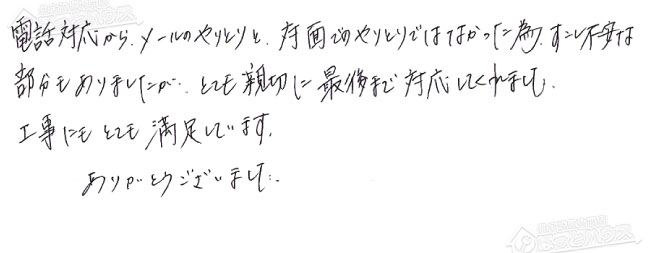 電話対応から、メールのやりとりと、対面でのやりとりではなかった為、すこし不安な
部分もありましたが、とても親切に最後まで対応してくれました。
工事にもとても満足しています。
ありがとうございました。